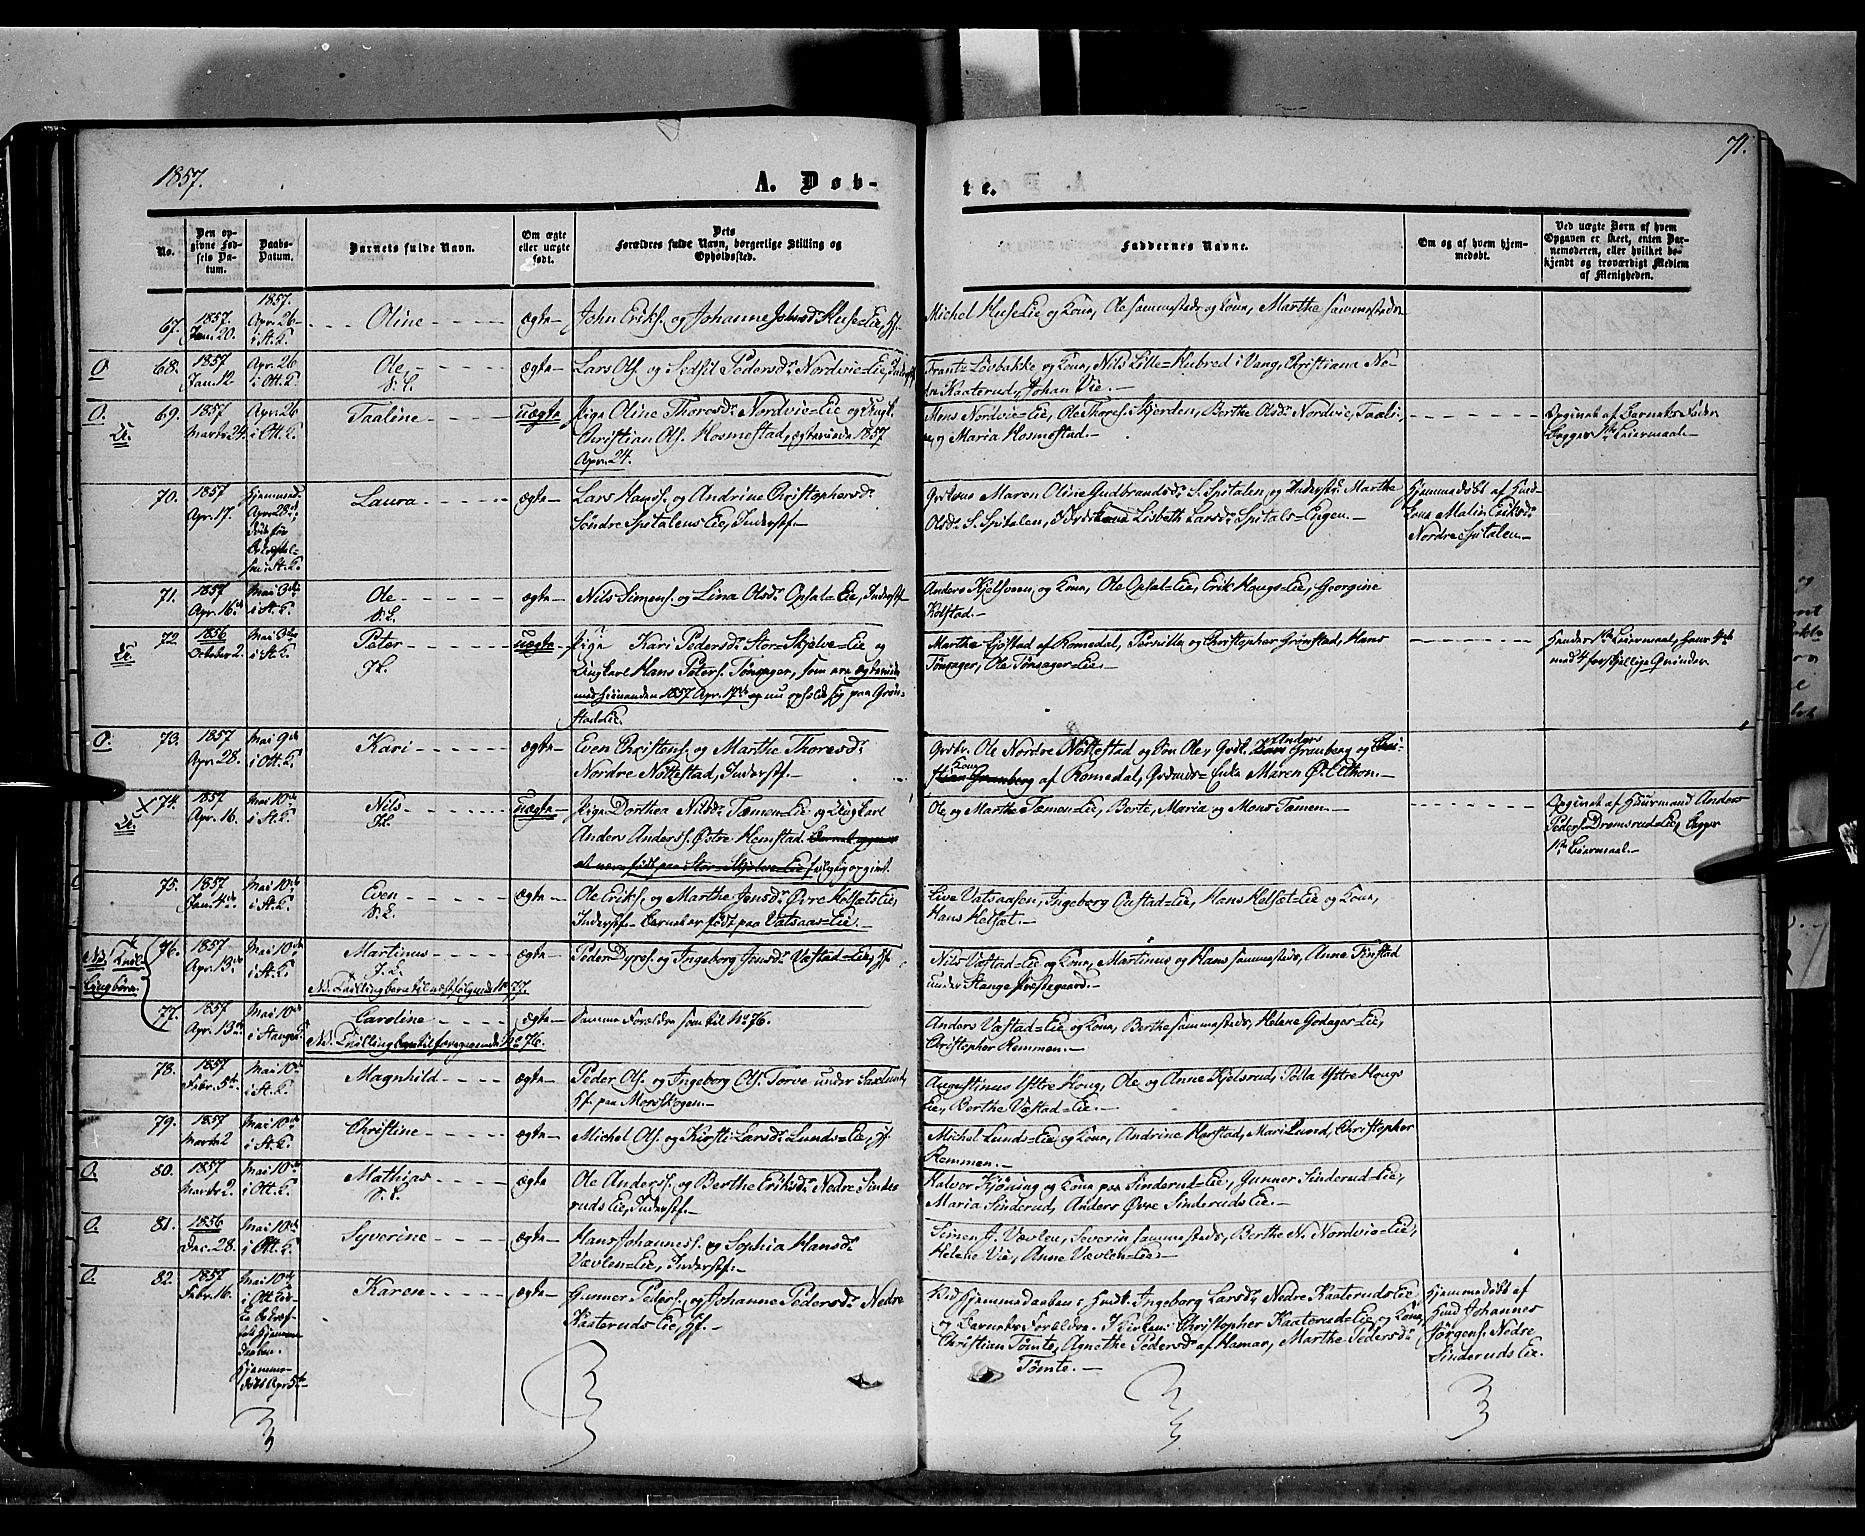 1857.
A. Døb-
te.
71.
No.
Den op-
givne Fød-
sels Da-
tum.
Daabs-
Datum.
Barnets fulde Navn.
Om ægte
eller uægte
født.
Dets
Forældres fulde Navn, borgerlige Stilling og
Opholdssted.
Faddernes Navne.
Om og af hvem hjem-
medøbt.
Ved uægte Børn af hvem
Opgaven er skeet, enten Bar-
nemoderen, eller hvilket be-
kjendt og troværdigt Medlem
af Menigheden.
67. 1857 Jan. 20. 1857. Apr. 26 i St. K. Oline ægte
John Eriks. og Johanne Johnsd. Huse-Eie, Hf.
Michel Huse-Eie og Kone, Ole sammesteds og Kone, Marthe sammesteds
O. 68. 1857 Jan. 12. Apr. 26 i Ott. K. Ole, ægte
Lars Ols. og Sidsel Pedersd. Nordvie-Eie, Inderst
Frants Løvbakke og Kone, Nils Lille-Hubred i Vang, Christiana Ne-
dre Kaaterud, Johan Vie.
O. 69. 1857 Marts 24. Apr. 26 i Ott. K. Taaline uægte
Pige Oline Thoresd. Nordvie-Eie og Ungk.
Christian Ols. Hosmestad, ægteviede 1857
Apr. 24.
Mons Nordvie-Eie, Ole Thores. Skjerden, Berthe Olsd. Nordvie, Taali-
ne og Maria Hosmestad.
Opgivet af Barnets Fader
Begges 1ste Leiermaal
70. 1857 Apr. 17. Hjemmed. Apr. 28de Laura ægte
Lars Hanss. og Andrine Christophersd.
Søndre Spitalens Eie, Inderstf.
Maren Oline Gudbrandsd. S. Spitalen, og Marthe
Olsd. S. Spitalen, Lisbeth Larsd. Spitals-Engen.
Hjemmedøbt af
Kone Malin Eriksd.
Nordre Spitalen.
71. 1857 Apr. 16de Mai 3die i St. K. Ole ægte
Nils Simens. og Lina Olsd. Opsal-Eie, Inderstf.
Anders Kjelsveen og Kone, Ole Opsal-Eie, Erik Hougs-Eie, Georgine
Kolstad.
72. 1856 October 2. Mai 3die i St. K. Peter uægte
Pige Kari Pedersd. Stor-Skjelve-Eie og
Ungkarl Hans Peters. Tønsager, som ere ægteviede
med hinanden 1857 Apr. 17de og nu opholde sig paa Grøn-
stad Eie.
Marthe Sjøstad af Romedal, Pernille og Christopher Grønstad, Hans
Tønsager, Ole Tønsager-Eie.
Hendes 1ste Leiermaal, hans 4de
med 4 forskjellige Qvinder
O. 73. 1857 Apr. 28. Mai 9de i Ott. K. Kari ægte
Even Christens. og Marthe Thoresd.
Nordre Nøttestad, Inderstf.
Ole Nordre Nøttestad og Søn Ole, Anders Granberg og
Kone af Romedal, Maren Ø. Lithon.
74. 1857 Apr. 16. Mai 10de i St. K. Nils uægte
Pige Dorthea Nilsd. Tømen-Eie og Ungkarl
Anders Anderss. Østre Hemstad.
Ole og Marthe Tømen-Eie, Berte, Maria og Mons Tømen.
Opgivet af Huusmand Anders
Peders. Dremsrud-Eie, Begges
1ste Leiermaal.
75. 1857 Jan. 4de. Mai 10de i St. K. Even ægte
Ole Eriks. og Marthe Jensd. Øvre Kolsæts Eie,
Inderstf. Barnet er født paa Vatsaas-Eie.
Live Vatsaasen, Ingeborg Oustad-Eie, Hans Helset-Eie og Kone,
Hans Helset.
76. 1857 Apr. 13de Mai 10de i St. K. Martinus ægte
NB. Tvillingbarn til næstfølgende No 77.
Peder Dyres. og Ingeborg Jensd. Væstad-Eie, Hf.
Nils Væstad-Eie og Kone, Martinus og Hans sammesteds, Anne Finstad
under Stange Præstegaard.
77. 1857 Apr. 13de Mai 10de i Stange K. Caroline ægte
NB. Tvillingbarn til foregaaende No 76.
Samme Forældre som til No 76.
Anders Væstad-Eie og Kone, Berthe sammesteds, Helene Godager-Eie,
Christopher Remmen.
78. 1857 Febr. 5te Mai 10de i St. K. Magnhild ægte
Peder Ols. og Ingeborg Ols. Torve under Saxlund,
Hf. paa Morskogen.
Augustinus Ystre Houg, Ole og Anne Kjelsrud, Pella Ystre Hougs
Eie, Berthe Væstad-Eie.
79. 1857 Marts 2 Mai 10de i St. K. Christine ægte
Michel Ols. og Kirsti Larsd. Lunds-Eie, Hf.
Michel Lunds-Eie og Kone, Andrine Harstad, Mari Lund, Christopher
Remmen.
O. 80. 1857 Marts 2. Mai 10de i Ott. K. Mathias ægte
Ole Anderss. og Berthe Eriksd. Nedre Sinde-
ruds Eie, Inderstf.
Halvor Kjøning og Kone paa Sinderud-Eie, Gunner Sinderud-Eie,
Maria Sinderud, Anders Øvre Sinderuds Eie.
O. 81. 1856 Dec. 28. Mai 10de i Ott. K. Syverine ægte
Hans Johanness. og Sophia Hansd.
Vævlen-Eie, Inderstf.
Simen J. Vævlen, Severin sammesteds, Berthe N. Nordvie-Eie,
Helene Vie, Anne Vævlen-Eie.
O. 82. 1857 Febr. 16. Mai 10de i Ott. Kirke Karen ægte
Hjemme-
døbt Apr. 5te
Gunner Peders. og Johanne Pedersd. Nedre
Kaateruds Eie, Hf.
Ved Hjemmedaaben: Ingeborg Larsd. Nedre Kaateruds Eie
og Barnets Forældre. I Kirken: Christopher Kaaterud-Eie og Kone,
Christian Tømte, Agnethe Pedersd. af Hamar, Marthe Pedersd.
Tømte.
Hjemmedøbt af
Johannes
Jørgens. Nedre
Sinderuds Eie.